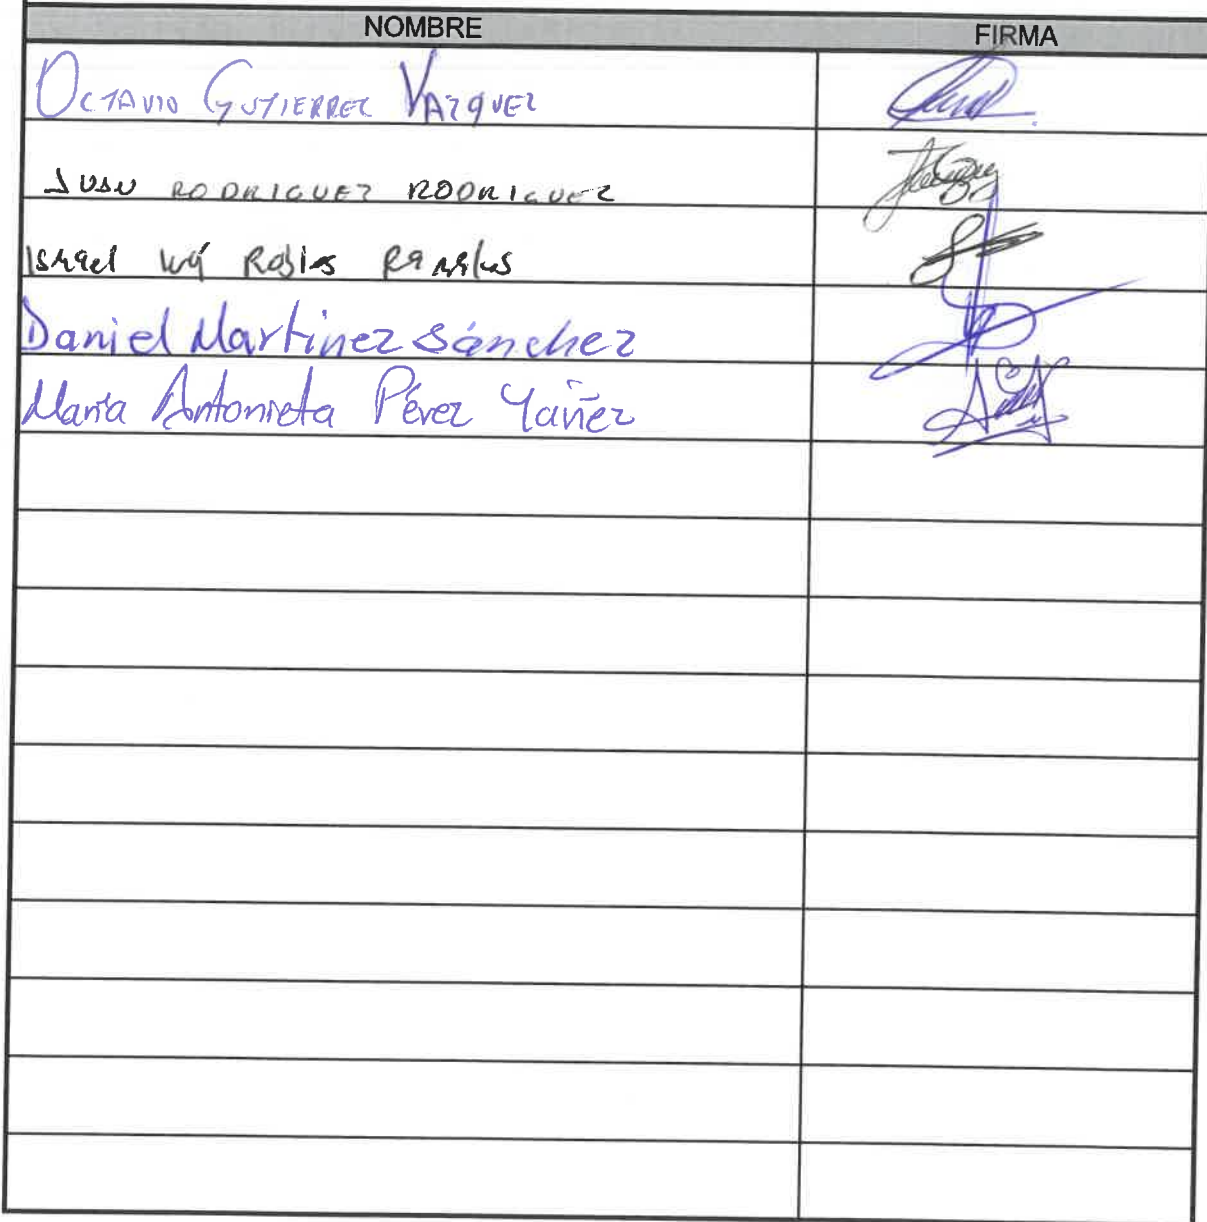 NOMBRE FIRMA
OCTAVIO GUTIERREZ VAZQUEZ
JUAN RODRIGUEZ RODRIGUEZ
Israel Robles
Daniel Martinez Sánchez
María Antonieta Pérez Yañez